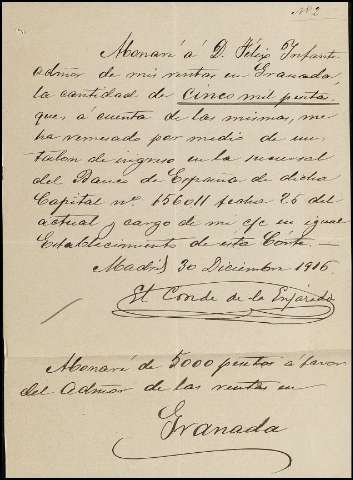 Nº 2
Monaré á D. Félix Infante
admor de mis rentas en Granada,
la cantidad de cinco mil pesetas
que, á cuenta de las mismas, me
ha remesado por medio de un
talon de ingreso en la sucursal
del Banco de España de dicha
Capital nº 156011 fecha 26 del
actual y cargo de mi c/c en igual
Establecimiento de esta Corte.
Madrid 30 Diciembre 1916
El Conde de la Enjarada
Monaré de 5000 pesetas á favor
del Admor de las rentas en
Granada